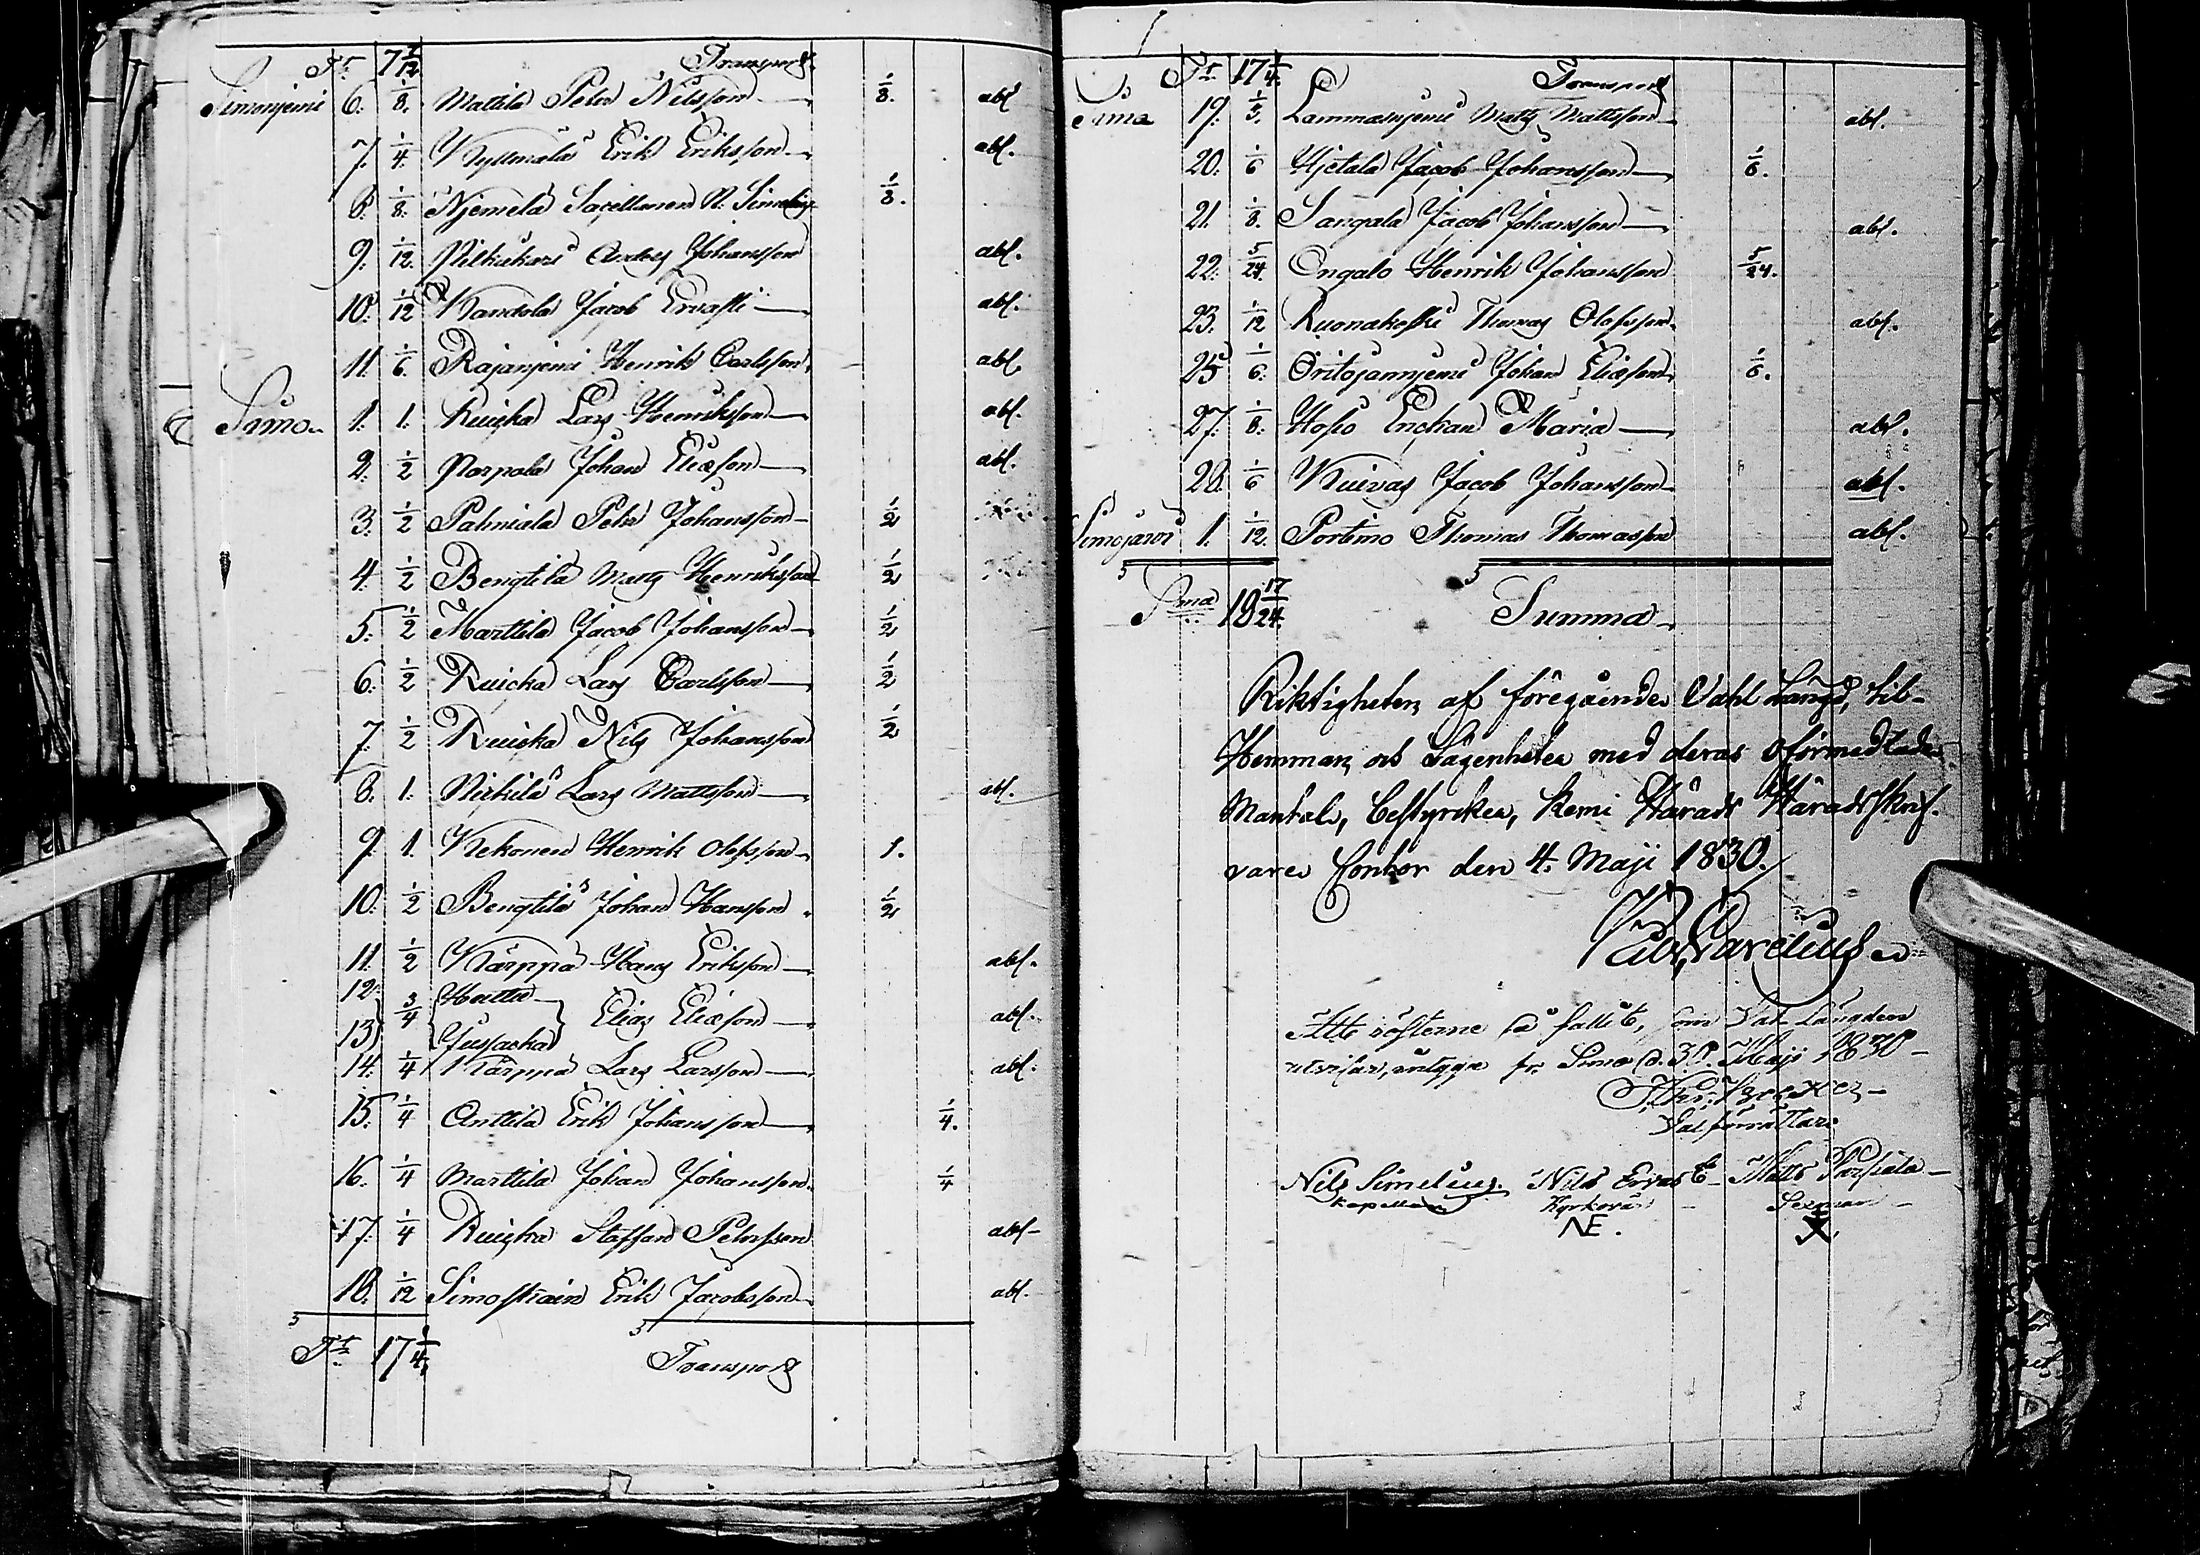 Tr. 7 7/12 Transport
Simoniemi 6. 1/8. Mattila Petter Nilsson 1/8. abs.
7. 1/4. Kyllmälä Erik Eriksson abs.
8. 1/8. Njemelä Sacellanen N. Simelius 1/8.
9. 1/12. Anders Johansson abs.
10. 1/12 Kandola Jacob Ervasti abs.
11. 1/6. Rajanjemi Henrik Carlsson abs.
Simo 1. 1. Ruiska Lars Henriksson abs.
2. 1/2 Johan Eliæson abs.
3. 1/2 Palniala Petter Johansson 1/2
4. 1/2 Bengtilä Matts Henriksson 1/2
5. 1/2 Marttila Jacob Johansson 1/2
6. 1/2 Ruiska Lars Carlsson 1/2
7. 1/2 Ruiska Nils Johansson 1/2
8. 1. Pirkilä Lars Mattsson abs.
9. 1. Kekonen Henrik Olofsson 1.
10. 1/2 Bengtilä Johan Hansson 1/2
11. 1/2 Kärppä Hans Eriksson abs.
12.
13 } 3/4 { Juusacka } Elias Eliæson abs.
14. 1/4 Kärppä Lars Larsson abs.
15. 1/4 Anttila Erik Johansson 1/4.
16. 1/4 Marttila Johan Johansson 1/4
17. 1/4 Ruiska Staffan Petersson abs.
18. 1/12 Simoskain Erik Jacobsson abs.
Tr. 17 1/4. Transport
Tr. 17 1/4. Transport
Simo 19. Lammasnjemi Matts Mattsson abs.
20. 1/6 Hjetala Jacob Johansson 1/6.
21. 1/8. Sangala Jacob Johansson abs.
22. 5/24. Ongalo Henrik Johansson 5/24.
23. 1/12 Ruonakoski Thomas Olofsson abs.
25 1/6. Johan Eliæson 1/6.
27. 1/8. Hosio Enckan Maria abs.
28. 1/6 Kuivas Jacob Johansson abs.
Simojärvi 1. 1/12. Portimo Thomas Thomasson abs.
Sma 18 17/24. Summa
Riktigheten af föregående Vahl Längd, till
Hemman och Lägenheter med deras oförmedlade
Mantal, bestyrcker, Kemi Härads Häradsskrif-
vare Contor den 4. Maji 1830.
Att rösterne så fallit, som Val Längden
utvisar, intyga fr. Simo d. 30. Maji 1830
Valförrättare
Nils Simelius. Nils Ervast Matts
Kapellan Kyrkovärd Sexman
NE. X.